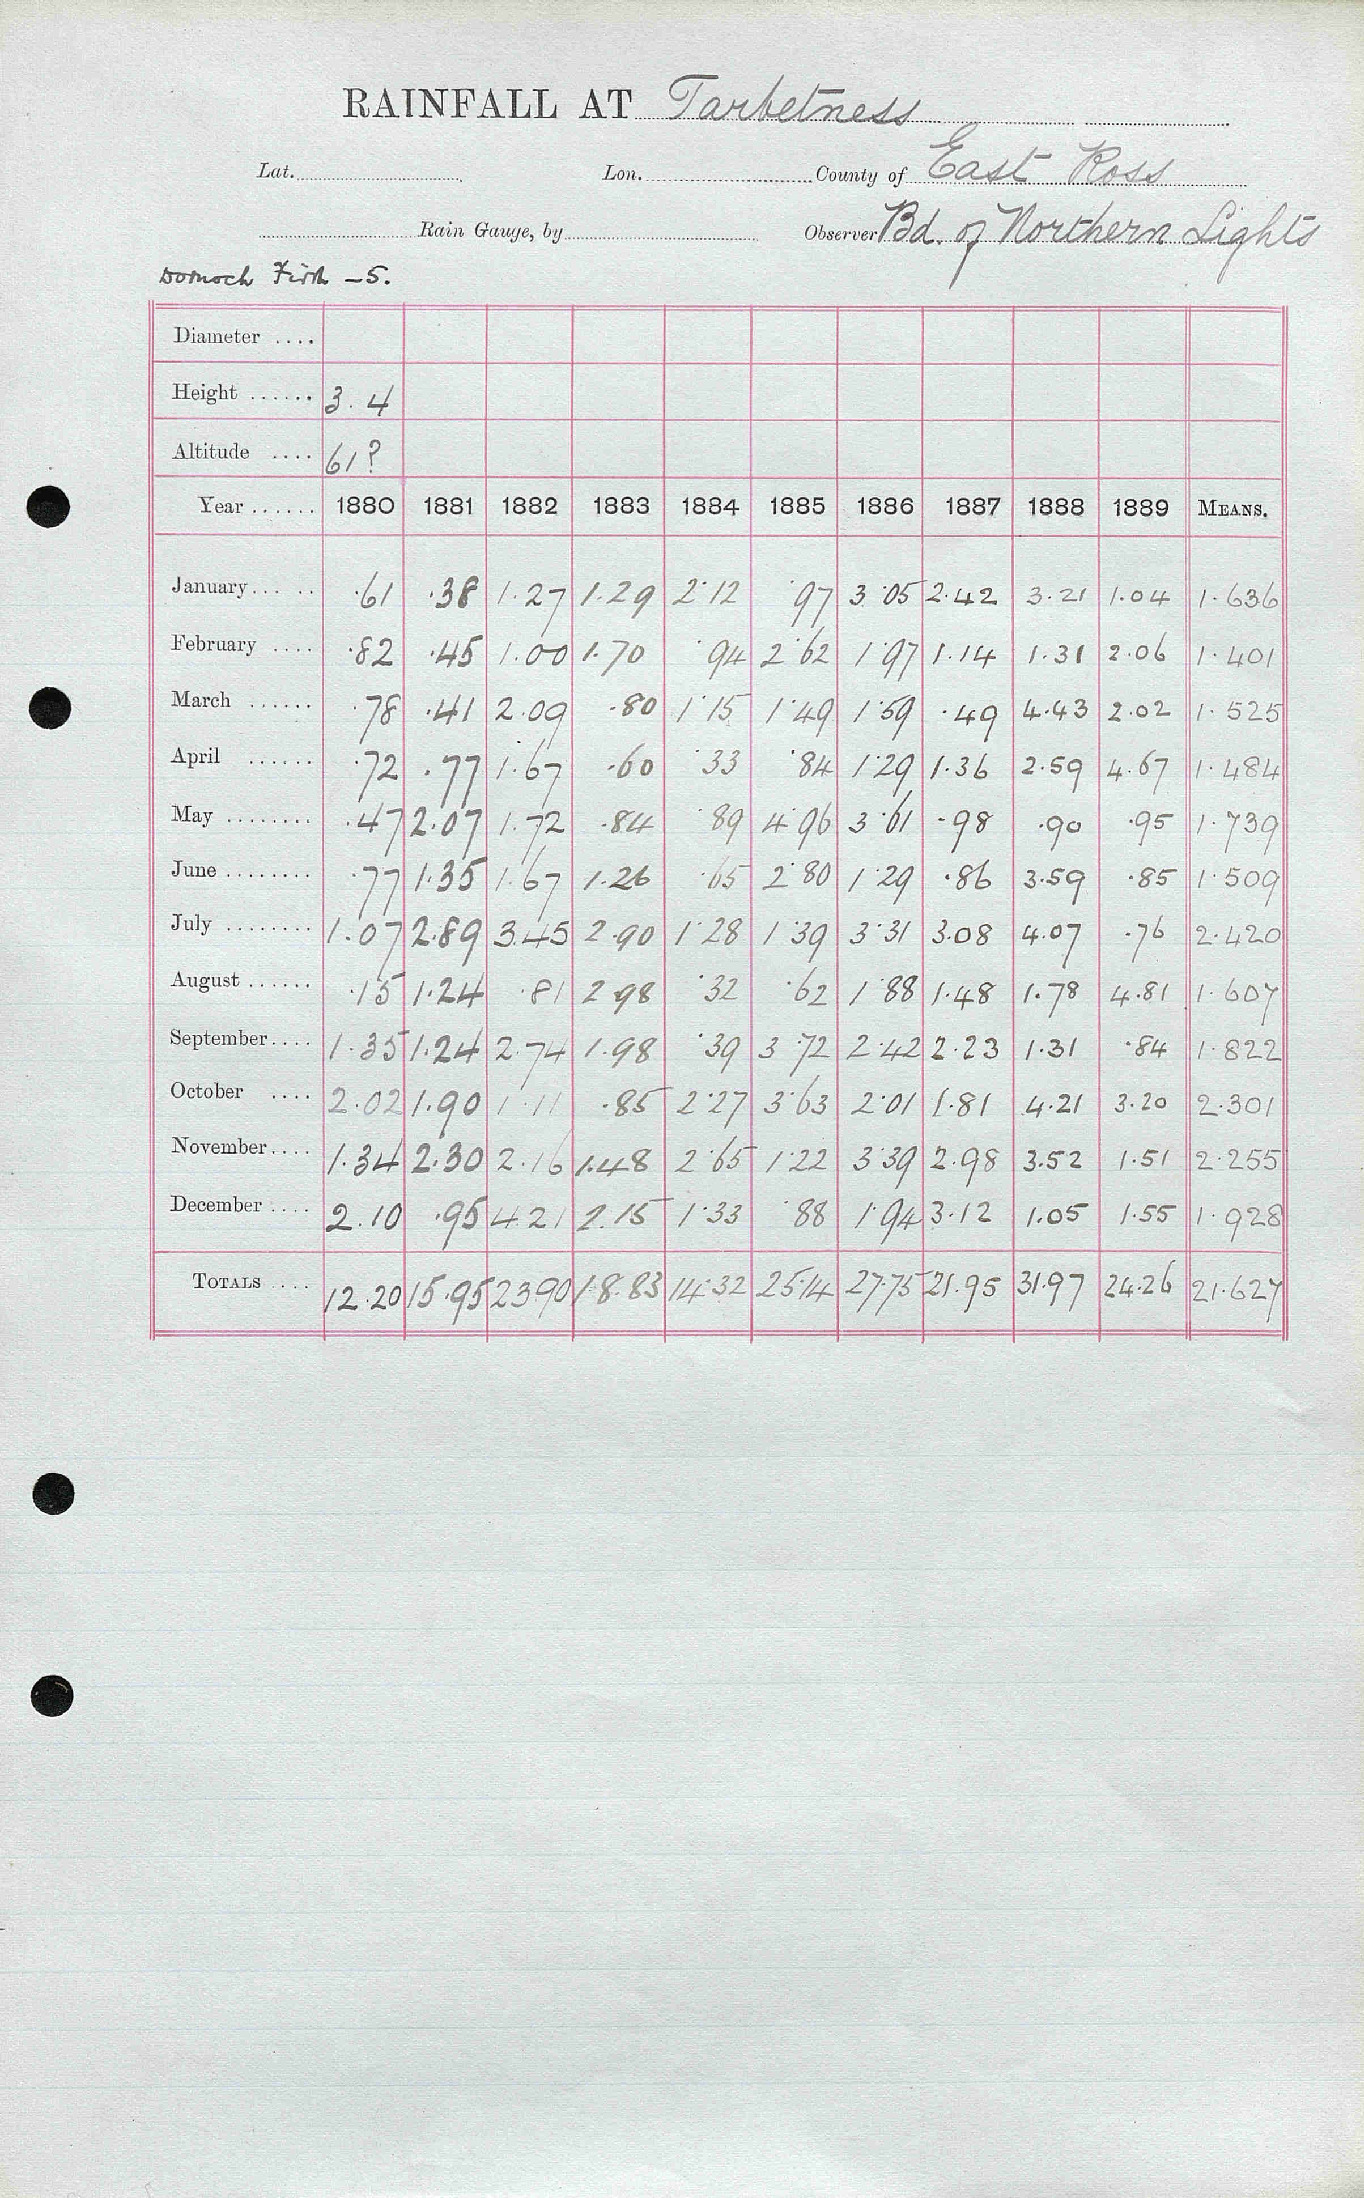 RAINFALL AT Tarbetness
Lat. Lon. County of East Ross
Rain Gauge, by Observer Bd. of Northern Lights
Dornoch Firth – 5.
Diameter ....
Height ...... 3. 4
Altitude .... 61?
Year ...... 1880 1881 1882 1883 1884 1885 1886 1887 1888 1889 MEANS.
January... .. .61 .38 1.27 1.29 2.12 .97 3.05 2.42 3.21 1.04 1.636
February .... .82 .45 1.00 1.70 .94 2.62 1.97 1.14 1.31 2.06 1.401
March ...... .78 .41 2.09 .80 1.15 1.49 1.59 .49 4.43 2.02 1.525
April ...... .72 .77 1.67 .60 .33 .84 1.29 1.36 2.59 4.67 1.484
May ........ .47 2.07 1.72 .84 .89 4.96 3.61 .98 .90 .95 1.739
June ........ .77 1.35 1.67 1.26 .65 2.80 1.29 .86 3.59 .85 1.509
July ........ 1.07 2.89 3.45 2.90 1.28 1.39 3.31 3.08 4.07 .76 2.420
August ...... .15 1.24 .81 2.98 .32 .62 1.88 1.48 1.78 4.81 1.607
September.... 1.35 1.24 2.74 1.98 .39 3.72 2.42 2.23 1.31 .84 1.822
October .... 2.02 1.90 1.11 .85 2.27 3.63 2.01 1.81 4.21 3.20 2.301
November.... 1.34 2.30 2.16 1.48 2.65 1.22 3.39 2.98 3.52 1.51 2.255
December .... 2.10 .95 4.21 2.15 1.33 .88 1.94 3.12 1.05 1.55 1.928
TOTALS .... 12.20 15.95 23.90 18.83 14.32 25.14 27.75 21.95 31.97 24.26 21.627